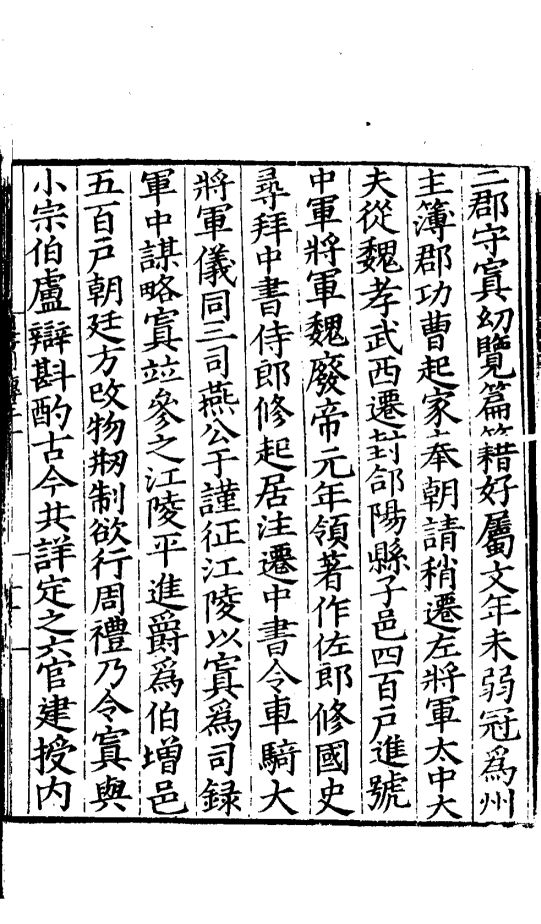 二郡守寘幼覽篇籍好屬文年未弱冠爲州
主簿郡功曹起家奉朝請稍遷左將軍太中大
夫從魏孝武西遷封郃陽縣子邑四百戶進號
中軍將軍魏廢帝元年領著作佐郎修國史
尋拜中書侍郎修起居注遷中書令車騎大
將軍儀同三司燕公于謹征江陵以寘爲司錄
軍中謀略寘竝參之江陵平進爵爲伯增邑
五百戶朝廷方改物剏制欲行周禮乃令寘與
小宗伯盧辯斟酌古今共詳定之六官建授内